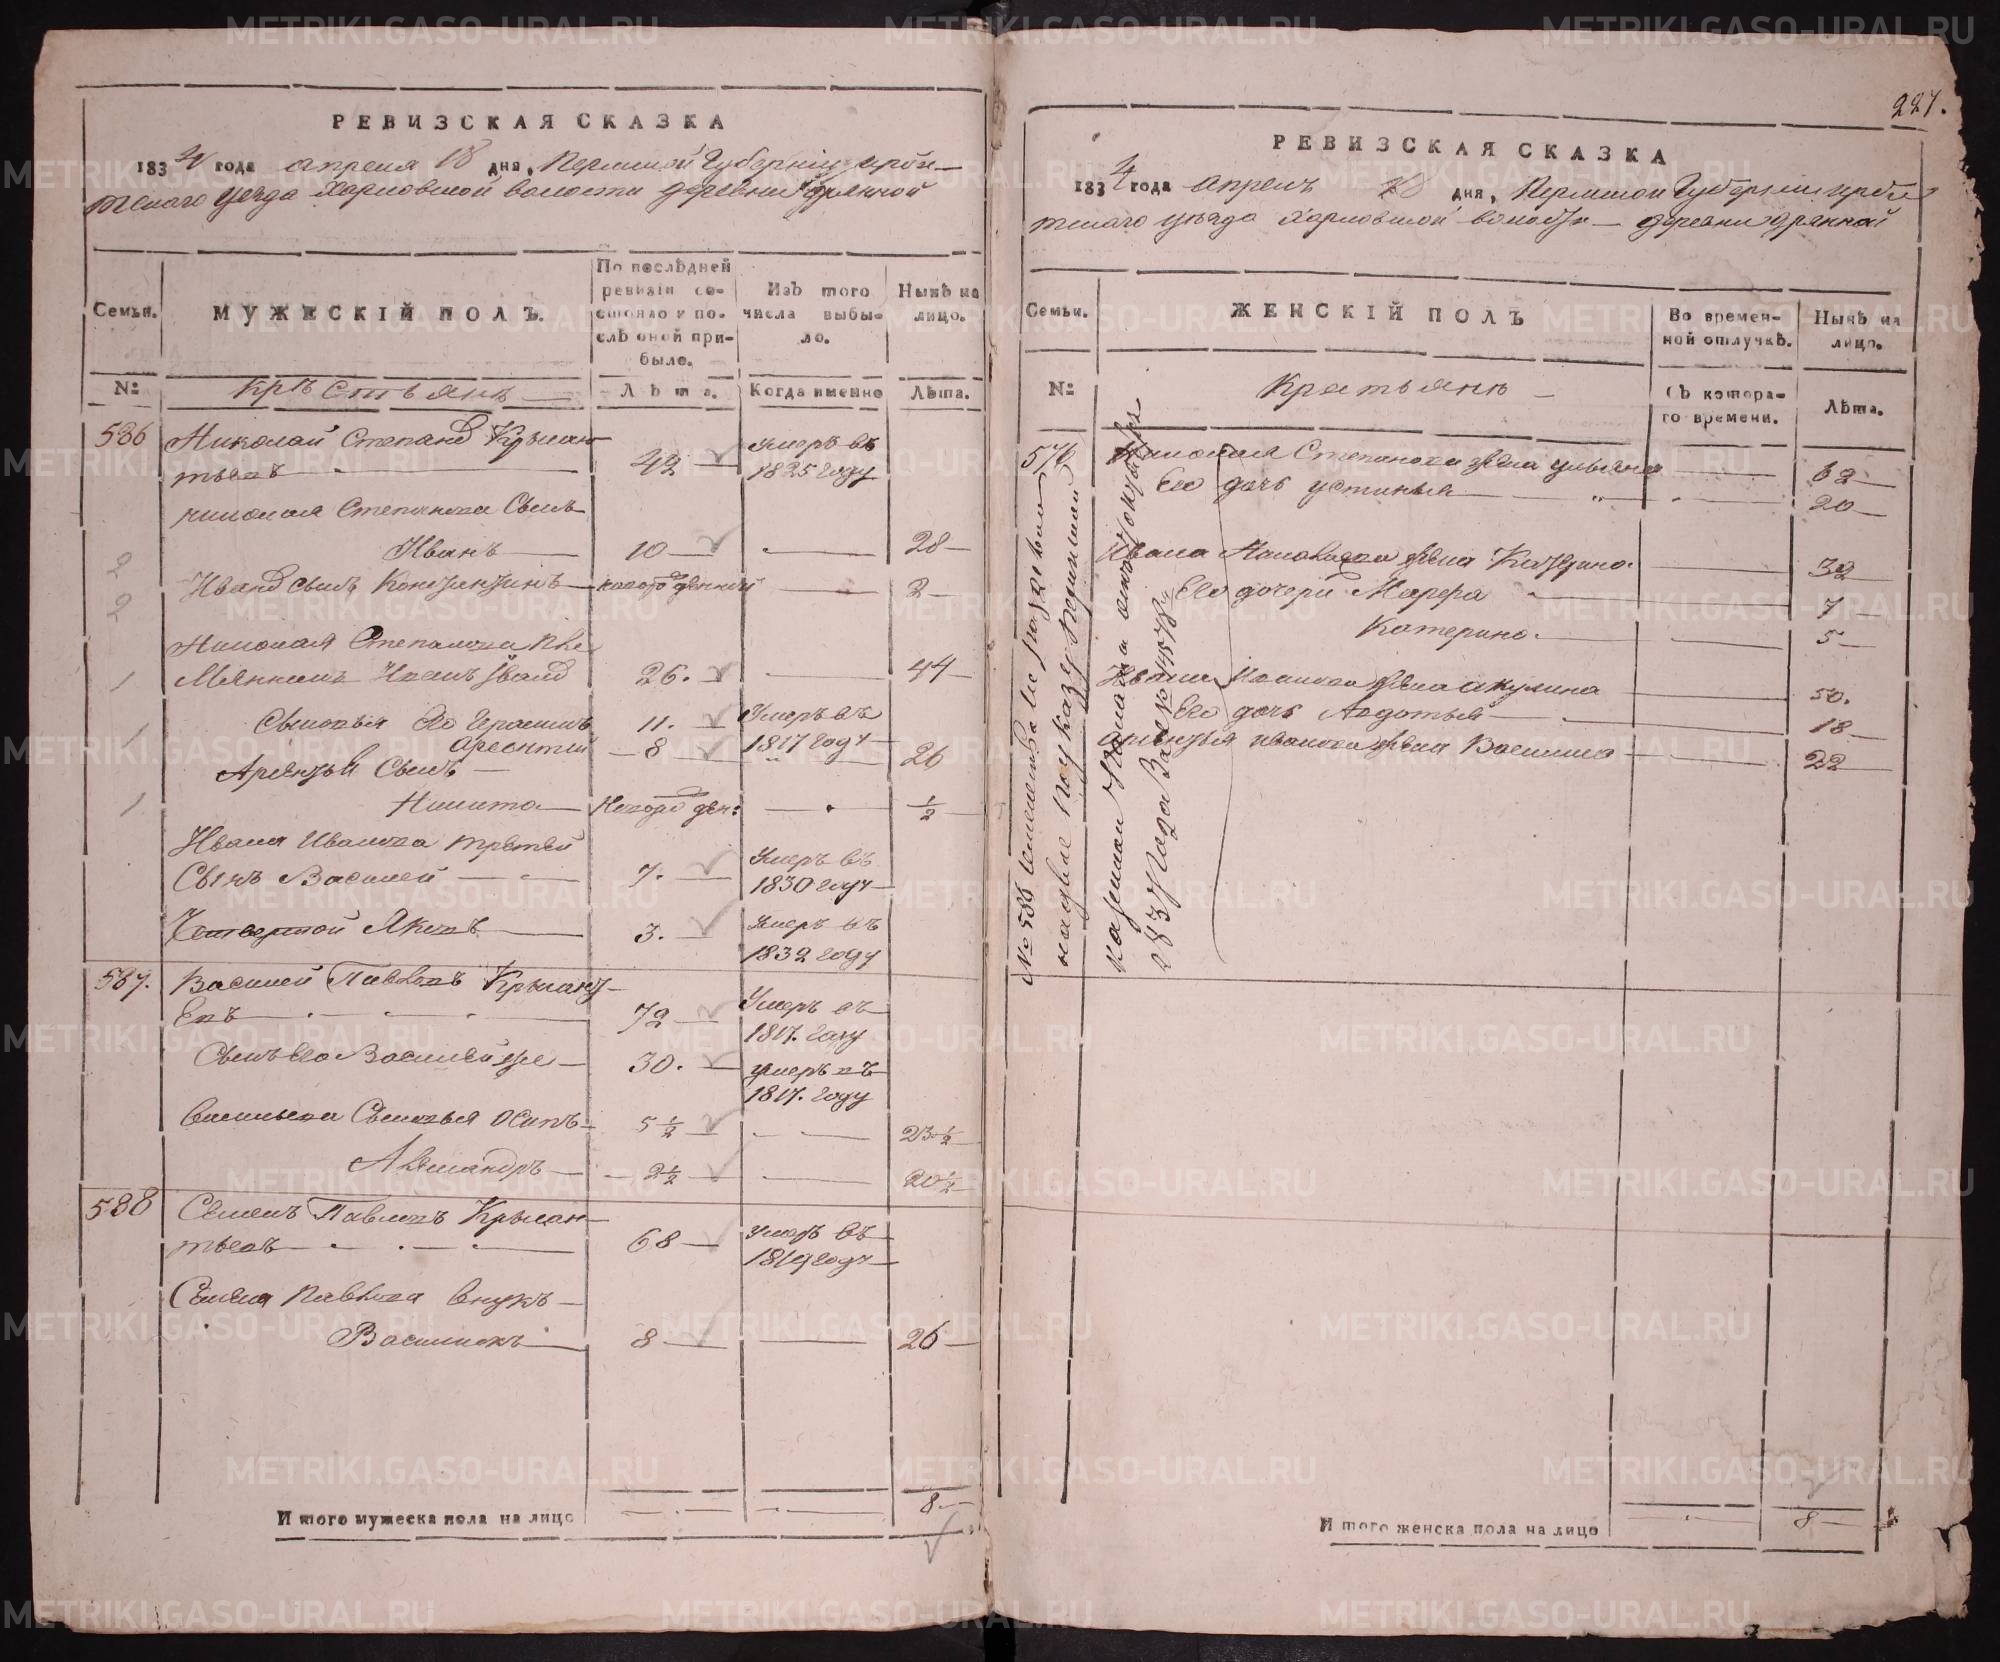 РЕВИЗСКАЯ СКАЗКА
1834 года апреля 18 дня, Пермской Губернии Ирби-
тскаго уезда Харловской волости деревни
Семьи.
МУЖЕСКІЙ ПОЛЪ.
По послѣдней ревизіи со-
стояло и по-
слѣ оной при-
было.
Изъ того
числа выбы-
ло.
Нынѣ на
лицо.
№
Крестьянъ
Лѣта.
Когда именно
Лѣта.
586 Николай Степановъ
42 умеръ въ
1825 году
Николая Степанова Сынъ
Иванъ 10 28
2
Ивановъ сынъ Констянтинъ новорожденной 2
2
Николая Степанова пле
мянникъ Иванъ Ивановъ 26. 44
1
Сыновья Его Герасимъ 11. Умеръ въ
1817 году
1
8 26
Сынъ
1
Никита Новорожден: ½
Ивана Иванова третей
Сынъ Василей 7. Умеръ въ
1830 году
Четвертой Яковъ 3. Умеръ въ
1832 году
587. Василей Павловъ
72 Умеръ въ
1817. году
Сынъ Его Василей же 30. умеръ въ
1817. году
Васильева Сыновья Осипъ 5½ 23½
Александръ 2½ 20½
588 Семенъ Павловъ
68 умеръ въ
1819 году
Семена Павлова внукъ
8 26
И того мужеска пола на лицо 8
227.
РЕВИЗСКАЯ СКАЗКА
1834 года апреля 18 дня, Пермской Губернии Ирби
тскаго уѣзда Харловской волости деревни
Семьи.
ЖЕНСКІЙ ПОЛЪ
Во времен-
ной отлучкѣ.
Нынѣ на
лицо.
№
Крестьянъ
Съ котора-
го времени.
Лѣта.
576 Николая Степанова жена Ульяна 62
Его дочь Устинья 20
Ивана Николаева жена Катерина 32
Его дочери Марфа 7
Катерина 5
Ивана Иванова жена Акулина 50.
Его дочь Авдотья 18
Иванова жена Василиса 22
№ 586
на двое по указу Пермской
казенной
И того женска пола на лицо 8
METRIKI.GASO-URAL.RU